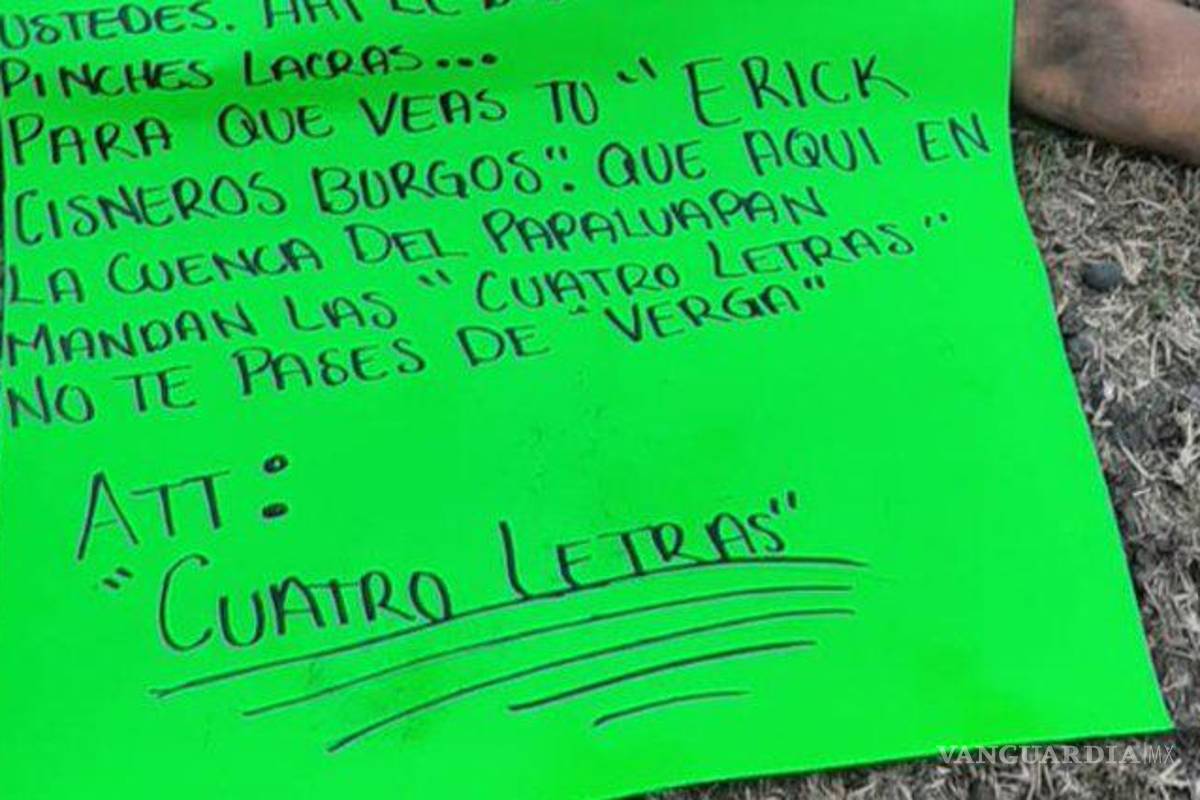 USTEDES. AHI LE
PINCHES LACRAS...
PARA QUE VEAS TU "ERICK
CISNEROS BURGOS". QUE AQUI EN
LA CUENCA DEL PAPALUAPAN
MANDAN LAS "CUATRO LETRAS"
NO TE PASES DE "VERGA"
ATT:
"CUATRO LETRAS"
VANGUARDIA|MX